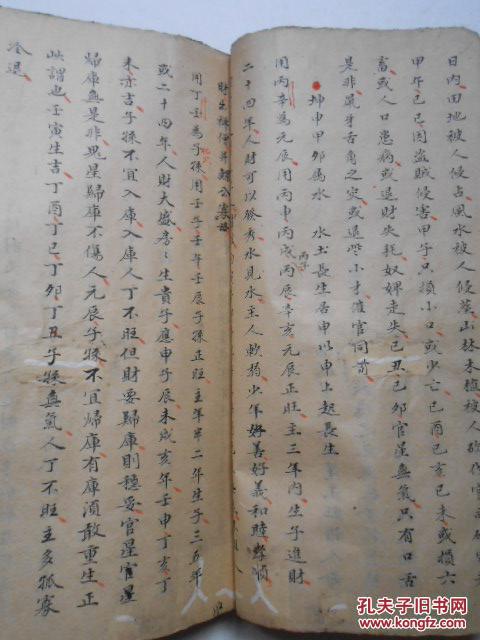 日內田地被人侵占風水被人侵葬山林木植被人砍伐官
甲午己巳因盜賊侵害甲子只損小口或少亡己酉己亥己未或損六
畜或人口患病或退財失耗奴婢走失己丑己卯官星無氣只有口舌
是非鼠牙雀角之定或退些小才催官同前
坤申甲卯屬水 水土長生居申以申上起長生
用丙辛為元辰用丙申丙戌丙辰辛亥元辰正旺主三年內生子進財
丙子
二十四年人財可以發秀水見水主人軟弱少年好善好義和睦
財生
用丁壬為子孫用壬子壬午壬辰子孫正旺主年半二年生子三五年
或二十四年人財大盛房々生貴子應申子辰未戌亥年壬申丁亥丁
未亦吉子孫不宜入庫入庫人丁不旺但財要歸庫則穩妥官星官星
歸庫無是非鬼星歸庫不傷人元辰子孫不宜歸庫有庫須散重生正
此謂也壬寅生吉丁酉丁巳丁卯丁丑子孫無氣人丁不旺主多孤寡
冷退
孔夫子旧书网